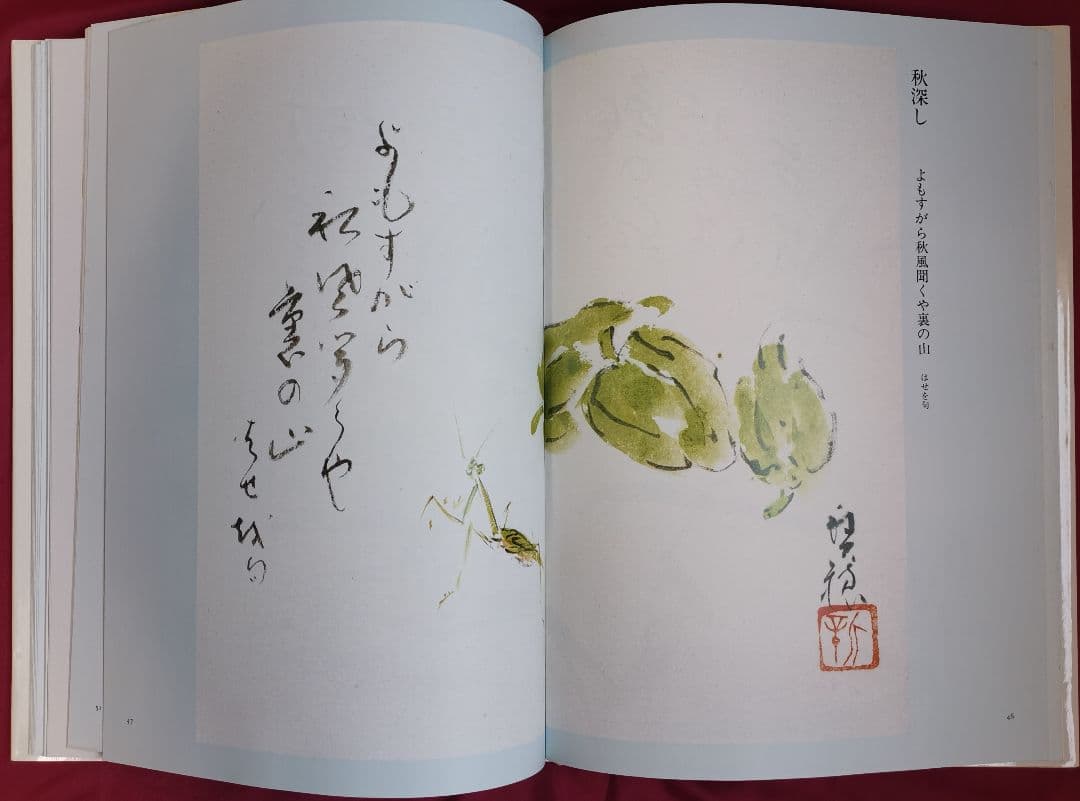 秋深し
よもすがら秋風聞くや裏の山
はせを句
よもすがら
秋風聞くや
裏の山
はせを句
46
47
51